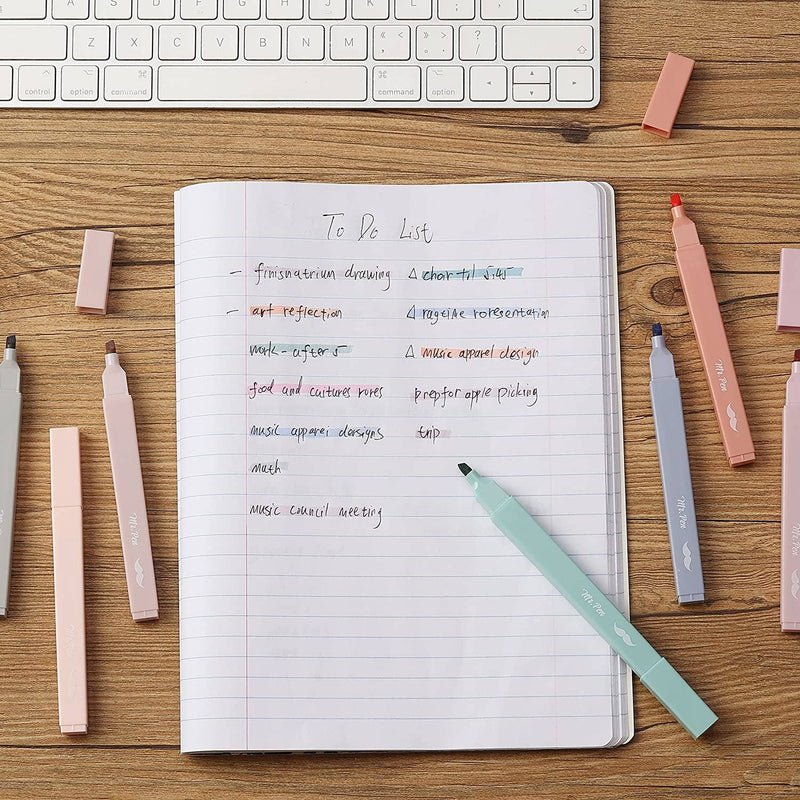 Z X C V B N M « < » > ? /
control option command command option
To Do List
— finisnatrium drawing
— art reflection
work - after 5
food and cuitures rores
music apparei dersigns
math
music council meeting
Δ chor til 5:45
Δ ragtime roresentation
Δ music apparel design
prepfor apple picking
trip
Mr. Pen
Mr. Pen
Mr. Pen
Mr. Pen
Mr. Pen